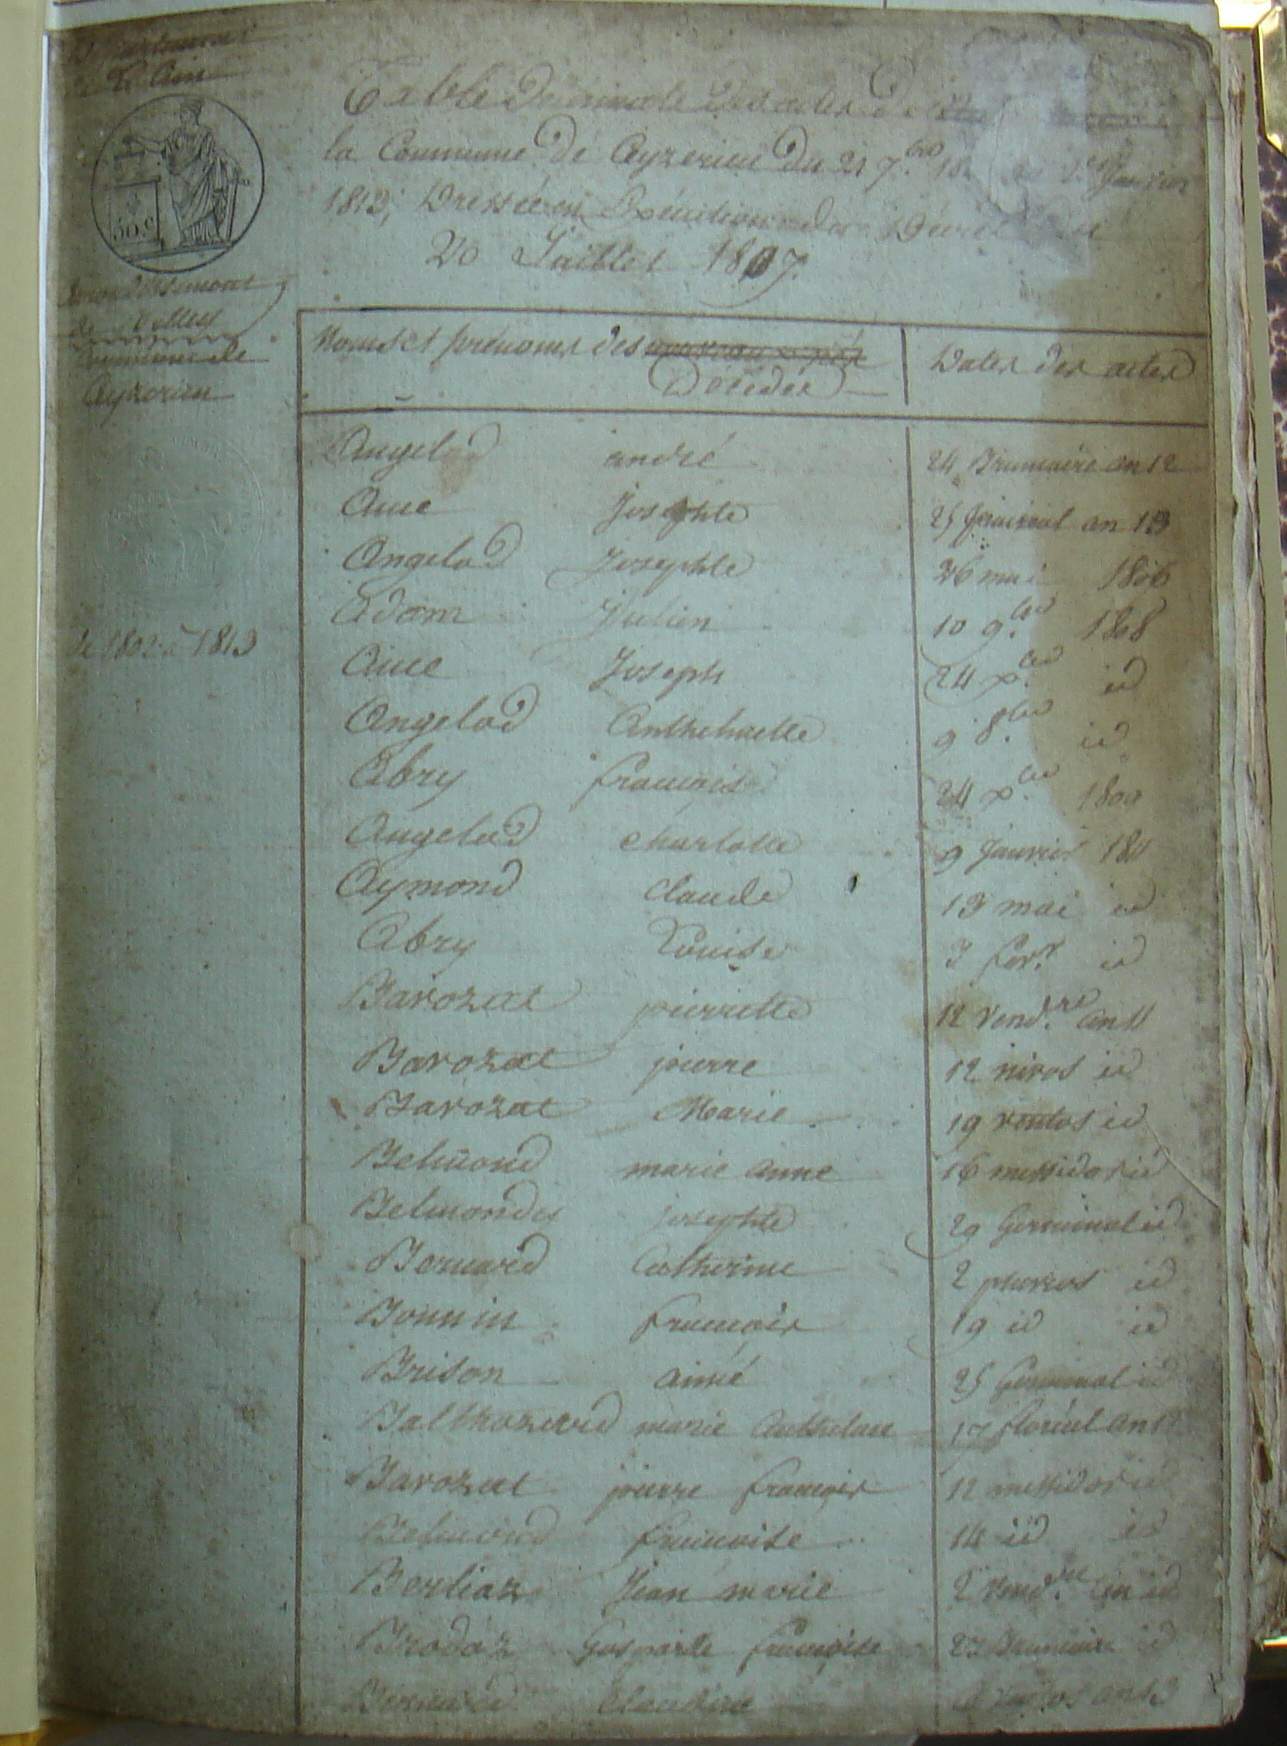 Département
de l'Ain
50.c
Arrondissement
de Belley
Commune de
Ceyzerieu
de 1802 à 1813
Table Décennale des actes de
la Commune de Ceyzerieu du 21 7.bre 18 au 1er Janvier
1813, Dressée en Exécution du Décret du
20 Juillet 1807.
Noms et prénoms des
Décédés
Dates des actes
Angelod andré 24 Brumaire an 12
Aime Josephte 25 frimaire an 13
Angelod Josephte 26 mai 1806
Adam Julien 10 9.bre 1808
Aime Joseph 24 x.bre id
Angelod Anthelmette 9 8.bre id
Abry francois 24 x.bre 1809
Angelod Charlotte 9 Janvier 1811
Aymond Claude 13 mai id
Abry Louise 3 fevr. id
Barozat pierrette 12 Vend.re an 11
Barozat pierre 12 nivos id
Barozat Marie 19 ventos id
Belmond marie anne 16 messidor id
Belmondy Josephte 29 Germinal id
Bernard Catherine 2 pluvios id
Bonnin francois 19 id id
Brison aimé 25 Germinal id
Balthazard marie Anthelme 17 floréal an 12
Barozat pierre francois 12 messidor id
Belmond francoise 14 id id
Berliaz Jean marie 2 Vend.re an id
Brodaz Gasparde francoise 23 Brumaire id
Bernard Claudine an 13